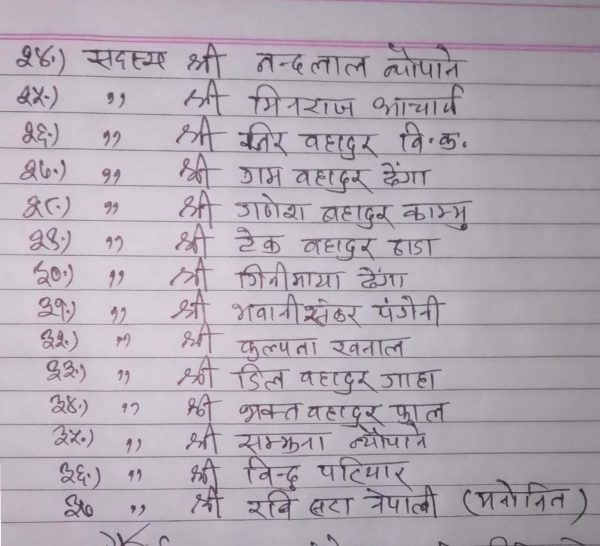 २४.) सदस्य श्री नन्दलाल न्यौपाने
२५.) ,, श्री मिनराज आचार्य
२६.) ,, श्री विर वहादुर वि.क.
२७.) ,, श्री गम वहादुर ढेंगा
२८.) ,, श्री गणेश बहादुर काम्मु
२९.) ,, श्री टेक वहादुर हाडा
३०.) ,, श्री गिनीमाया ढेंगा
३१.) ,, श्री भवानीसंकर पंगेनी
३२.) ,, श्री कुल्पता खनाल
३३.) ,, श्री डिल वहादुर गाहा
३४.) ,, श्री भक्त वहादुर फाल
३५.) ,, श्री सम्झना न्यौपाने
३६.) ,, श्री विन्दु परियार
३७ ,, श्री रवि नेपाली (मनोनित)